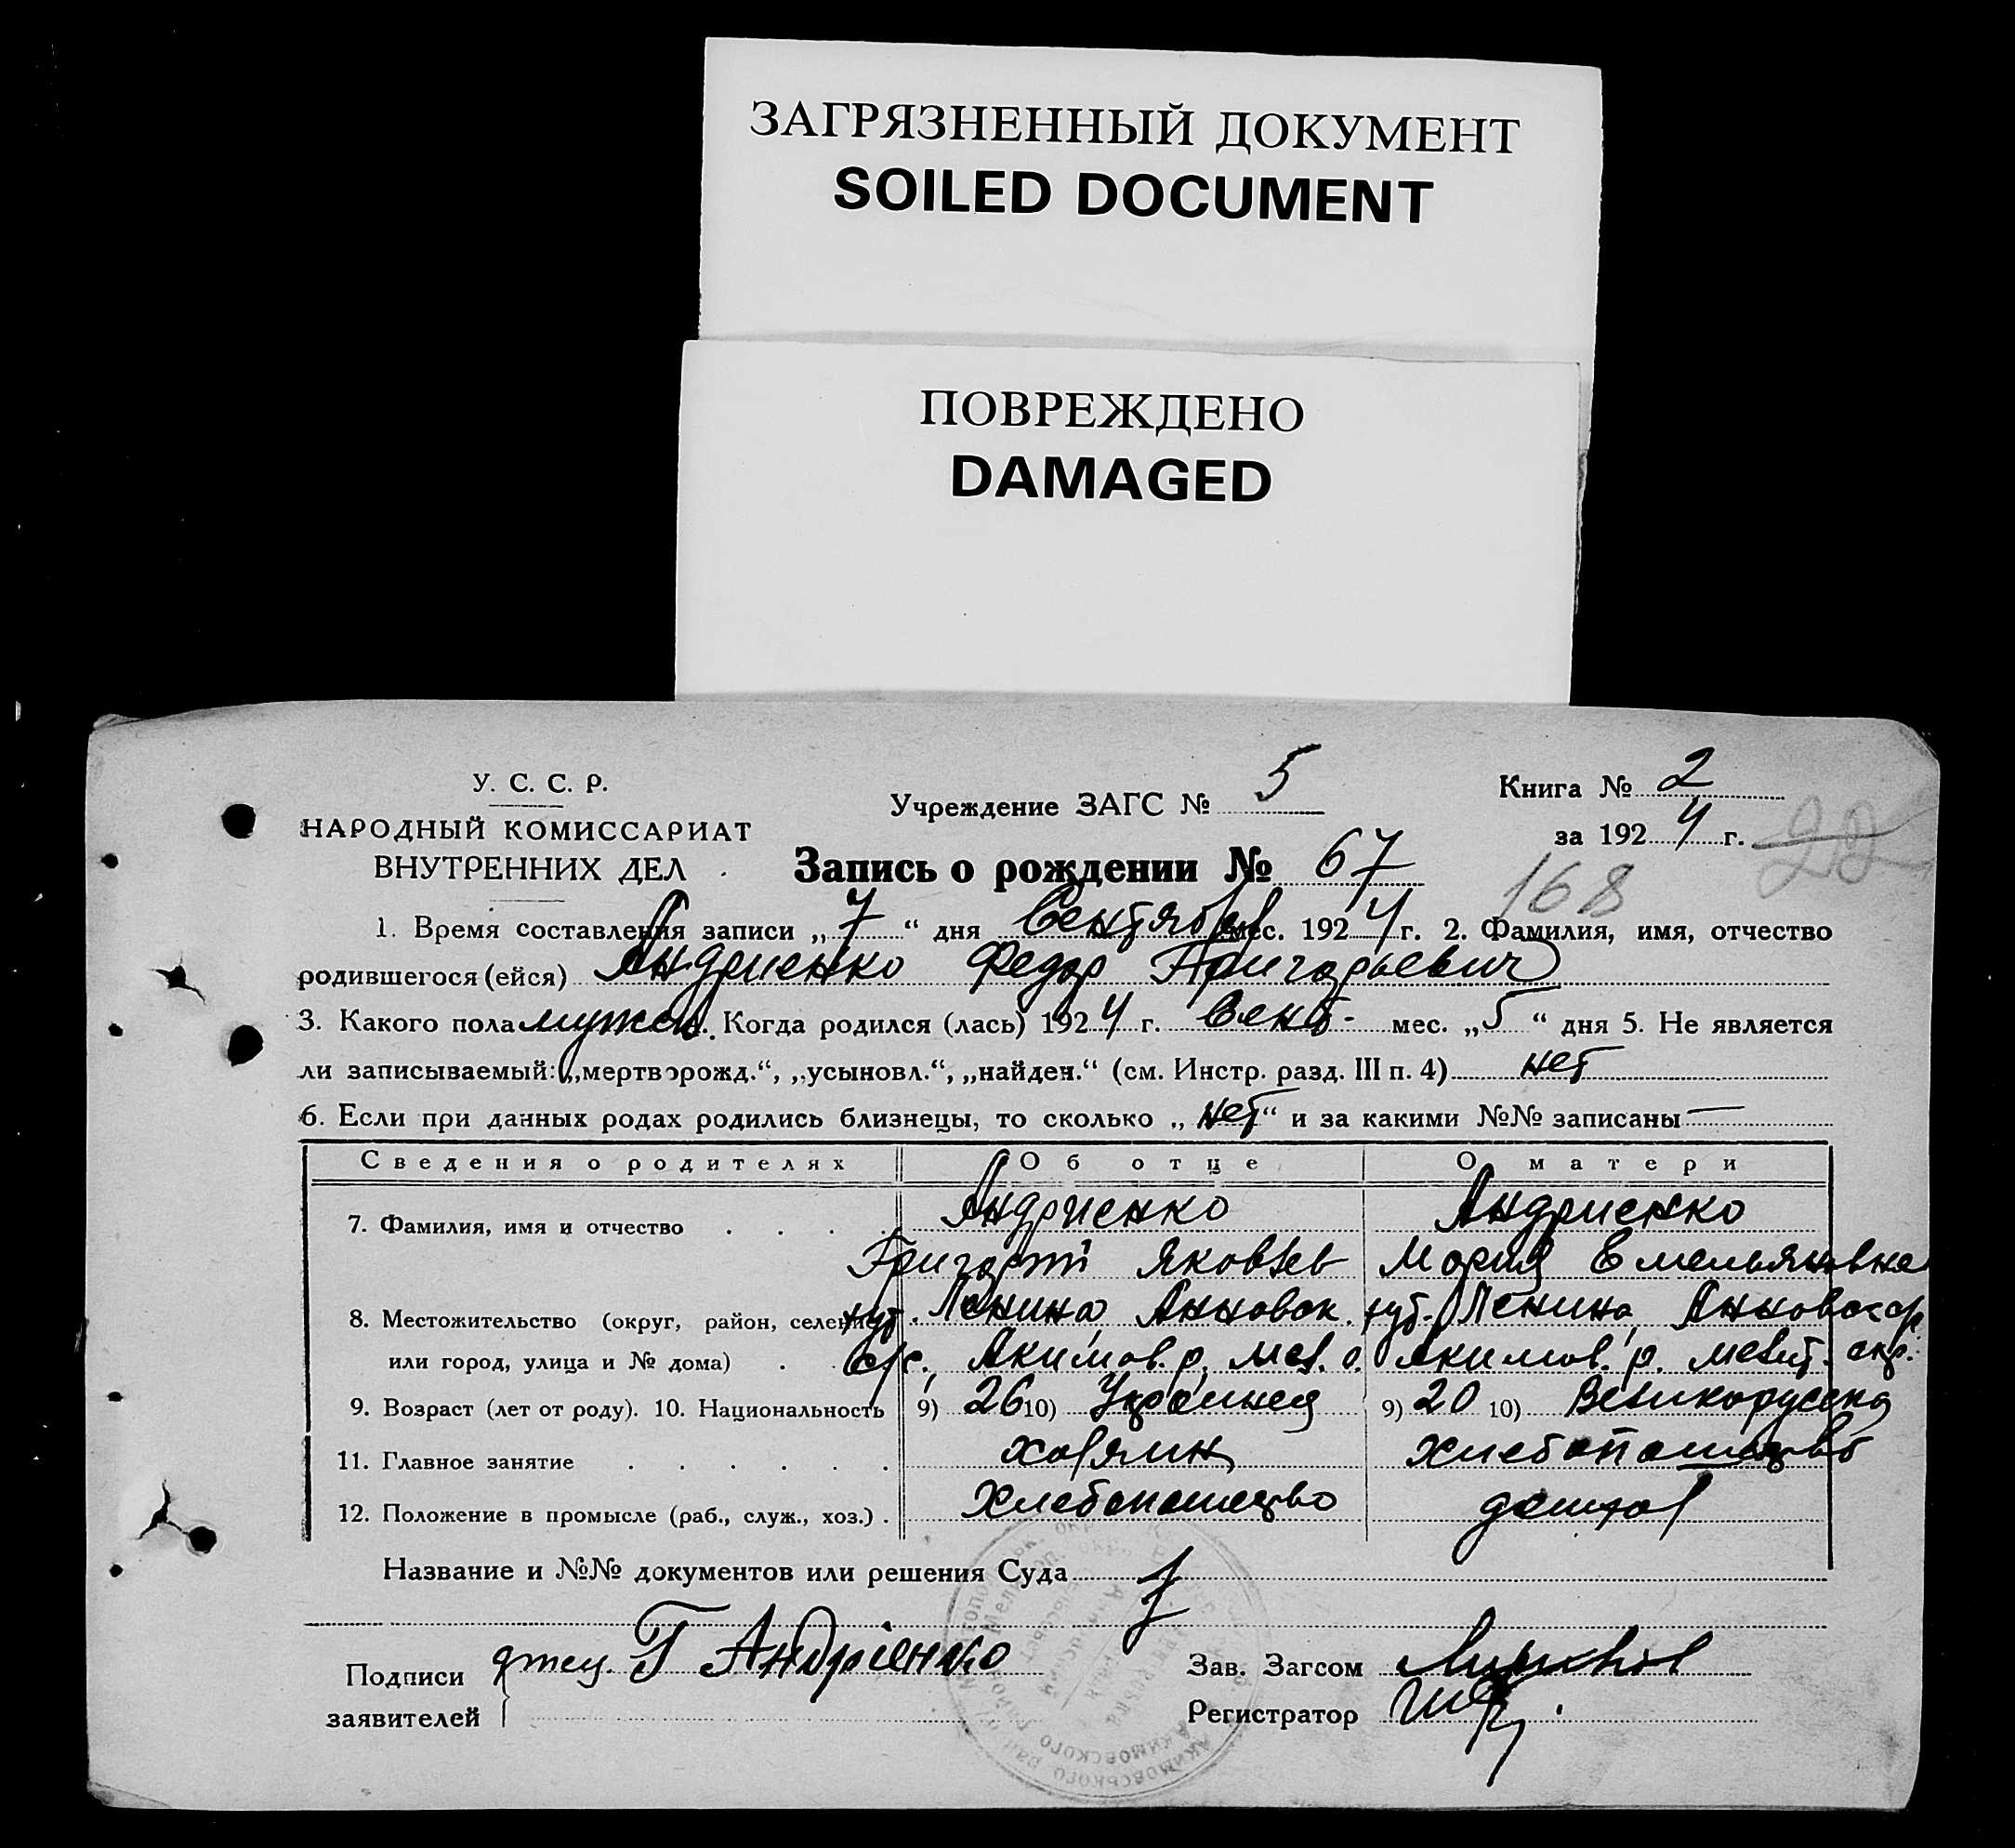 ЗАГРЯЗНЕННЫЙ ДОКУМЕНТ
SOILED DOCUMENT
ПОВРЕЖДЕНО
DAMAGED
У. С. С. Р.
НАРОДНЫЙ КОМИССАРИАТ
ВНУТРЕННИХ ДЕЛ
Учреждение ЗАГС № 5
Книга № 2
за 1924 г. 22
Запись о рождении № 67
168
1. Время составления записи „7“ дня Сентября мес. 1924 г. 2. Фамилия, имя, отчество
родившегося (ейся) Андриенко Федор Григорьевич
3. Какого пола мужск. Когда родился (лась) 1924 г. Сент- мес. „5“ дня 5. Не является
ли записываемый: „мертворожд.“, „усыновл.“, „найден.“ (см. Инстр. разд. III п. 4) нет
6. Если при данных родах родились близнецы, то сколько „нет“ и за какими №№ записаны —
Сведения о родителях Об отце О матери
7. Фамилия, имя и отчество . . . . Андриенко Андриенко
Григорій Яковлев Мария Емельяновна
8. Местожительство (округ, район, селение хут. Ленина Анновск. хут. Ленина Анновск с/р
или город, улица и № дома) . с/с. Акимов. р. Мел. о. Акимов. р. Мелит. окр.
9. Возраст (лет от роду). 10. Национальность 9) 26 10) Украинец 9) 20 10) Великорусска
11. Главное занятие . . . . . . хозяин хлебопашество
12. Положение в промысле (раб., служ., хоз.) . Хлебопашество домхоз
Название и №№ документов или решения Суда
Подписи отец Г Андріенко Зав. Загсом
заявителей Регистратор